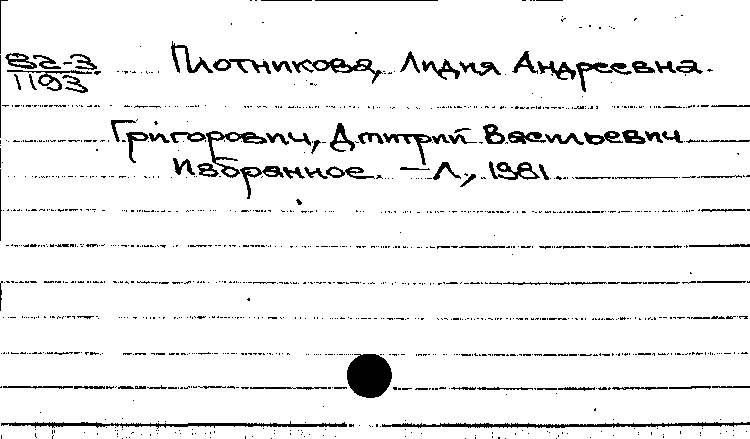 82-3 Плотникова, Лидия Андреевна.
1193
Григорович, Дмитрий Васильевич
Избранное. – Л., 1981.